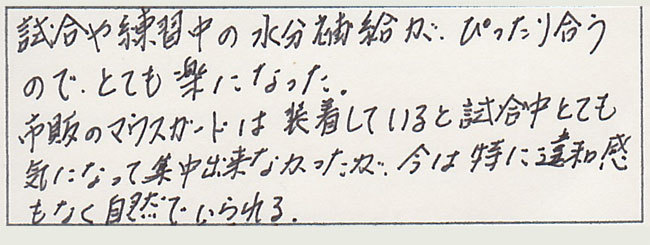 試合や練習中の水分補給が、ぴったり合う
ので、とても楽になった。
市販のマウスガードは装着していると試合中とても
気になって集中出来なかったが、今は特に違和感
もなく自然でいられる。